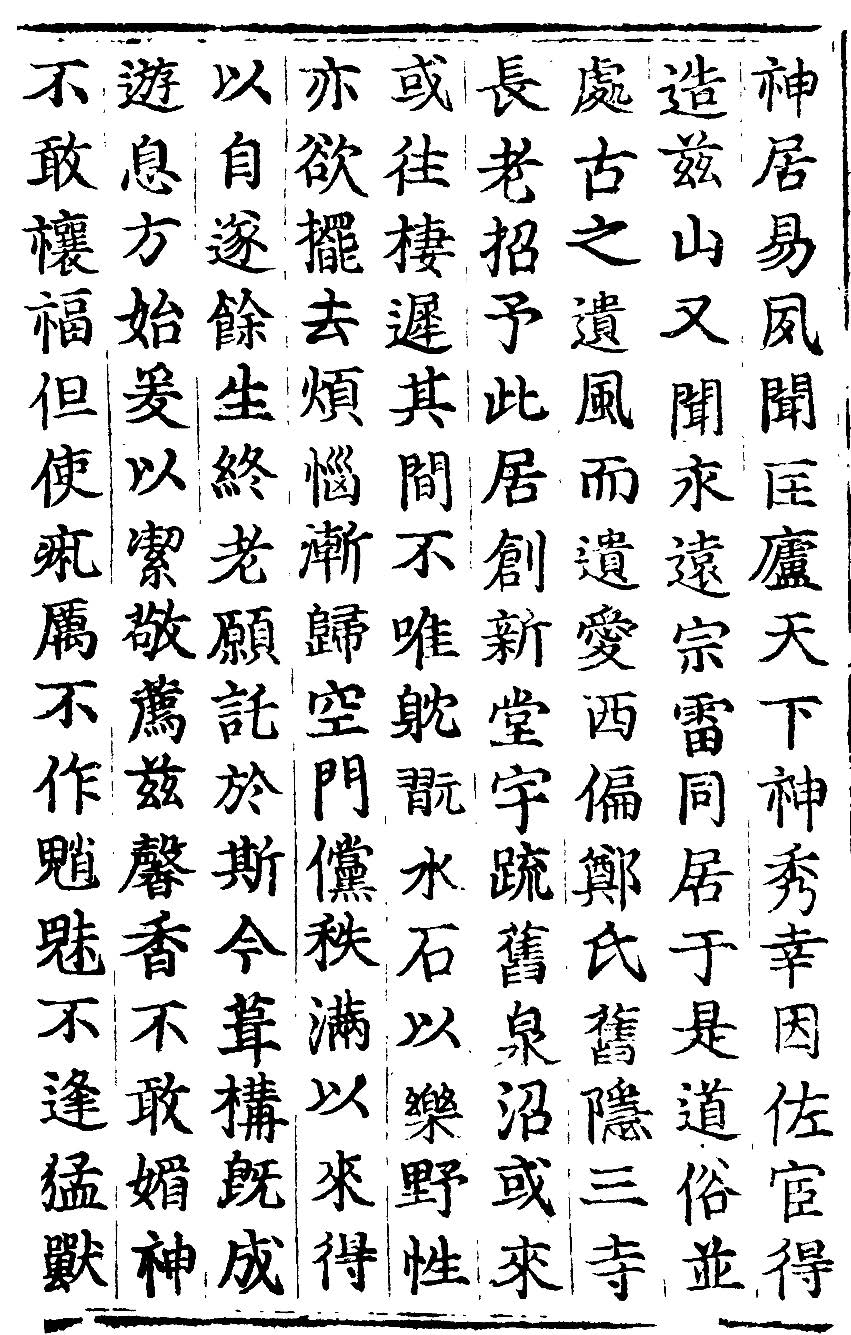 神居易夙聞匡廬天下神秀幸因佐宦得
造兹山又聞永遠宗雷同居于是道俗並
處古之遺風而遺愛西偏鄭氏舊隱三寺
長老招予此居創新堂宇疏舊泉沼或來
或往棲遲其間不唯躭翫水石以樂野性
亦欲擺去煩惱漸歸空門儻秩滿以來得
以自遂餘生終老願託於斯今葺構既成
遊息方始爰以潔敬薦兹馨香不敢媚神
不敢禳福但使疪厲不作魈魅不逢猛獸